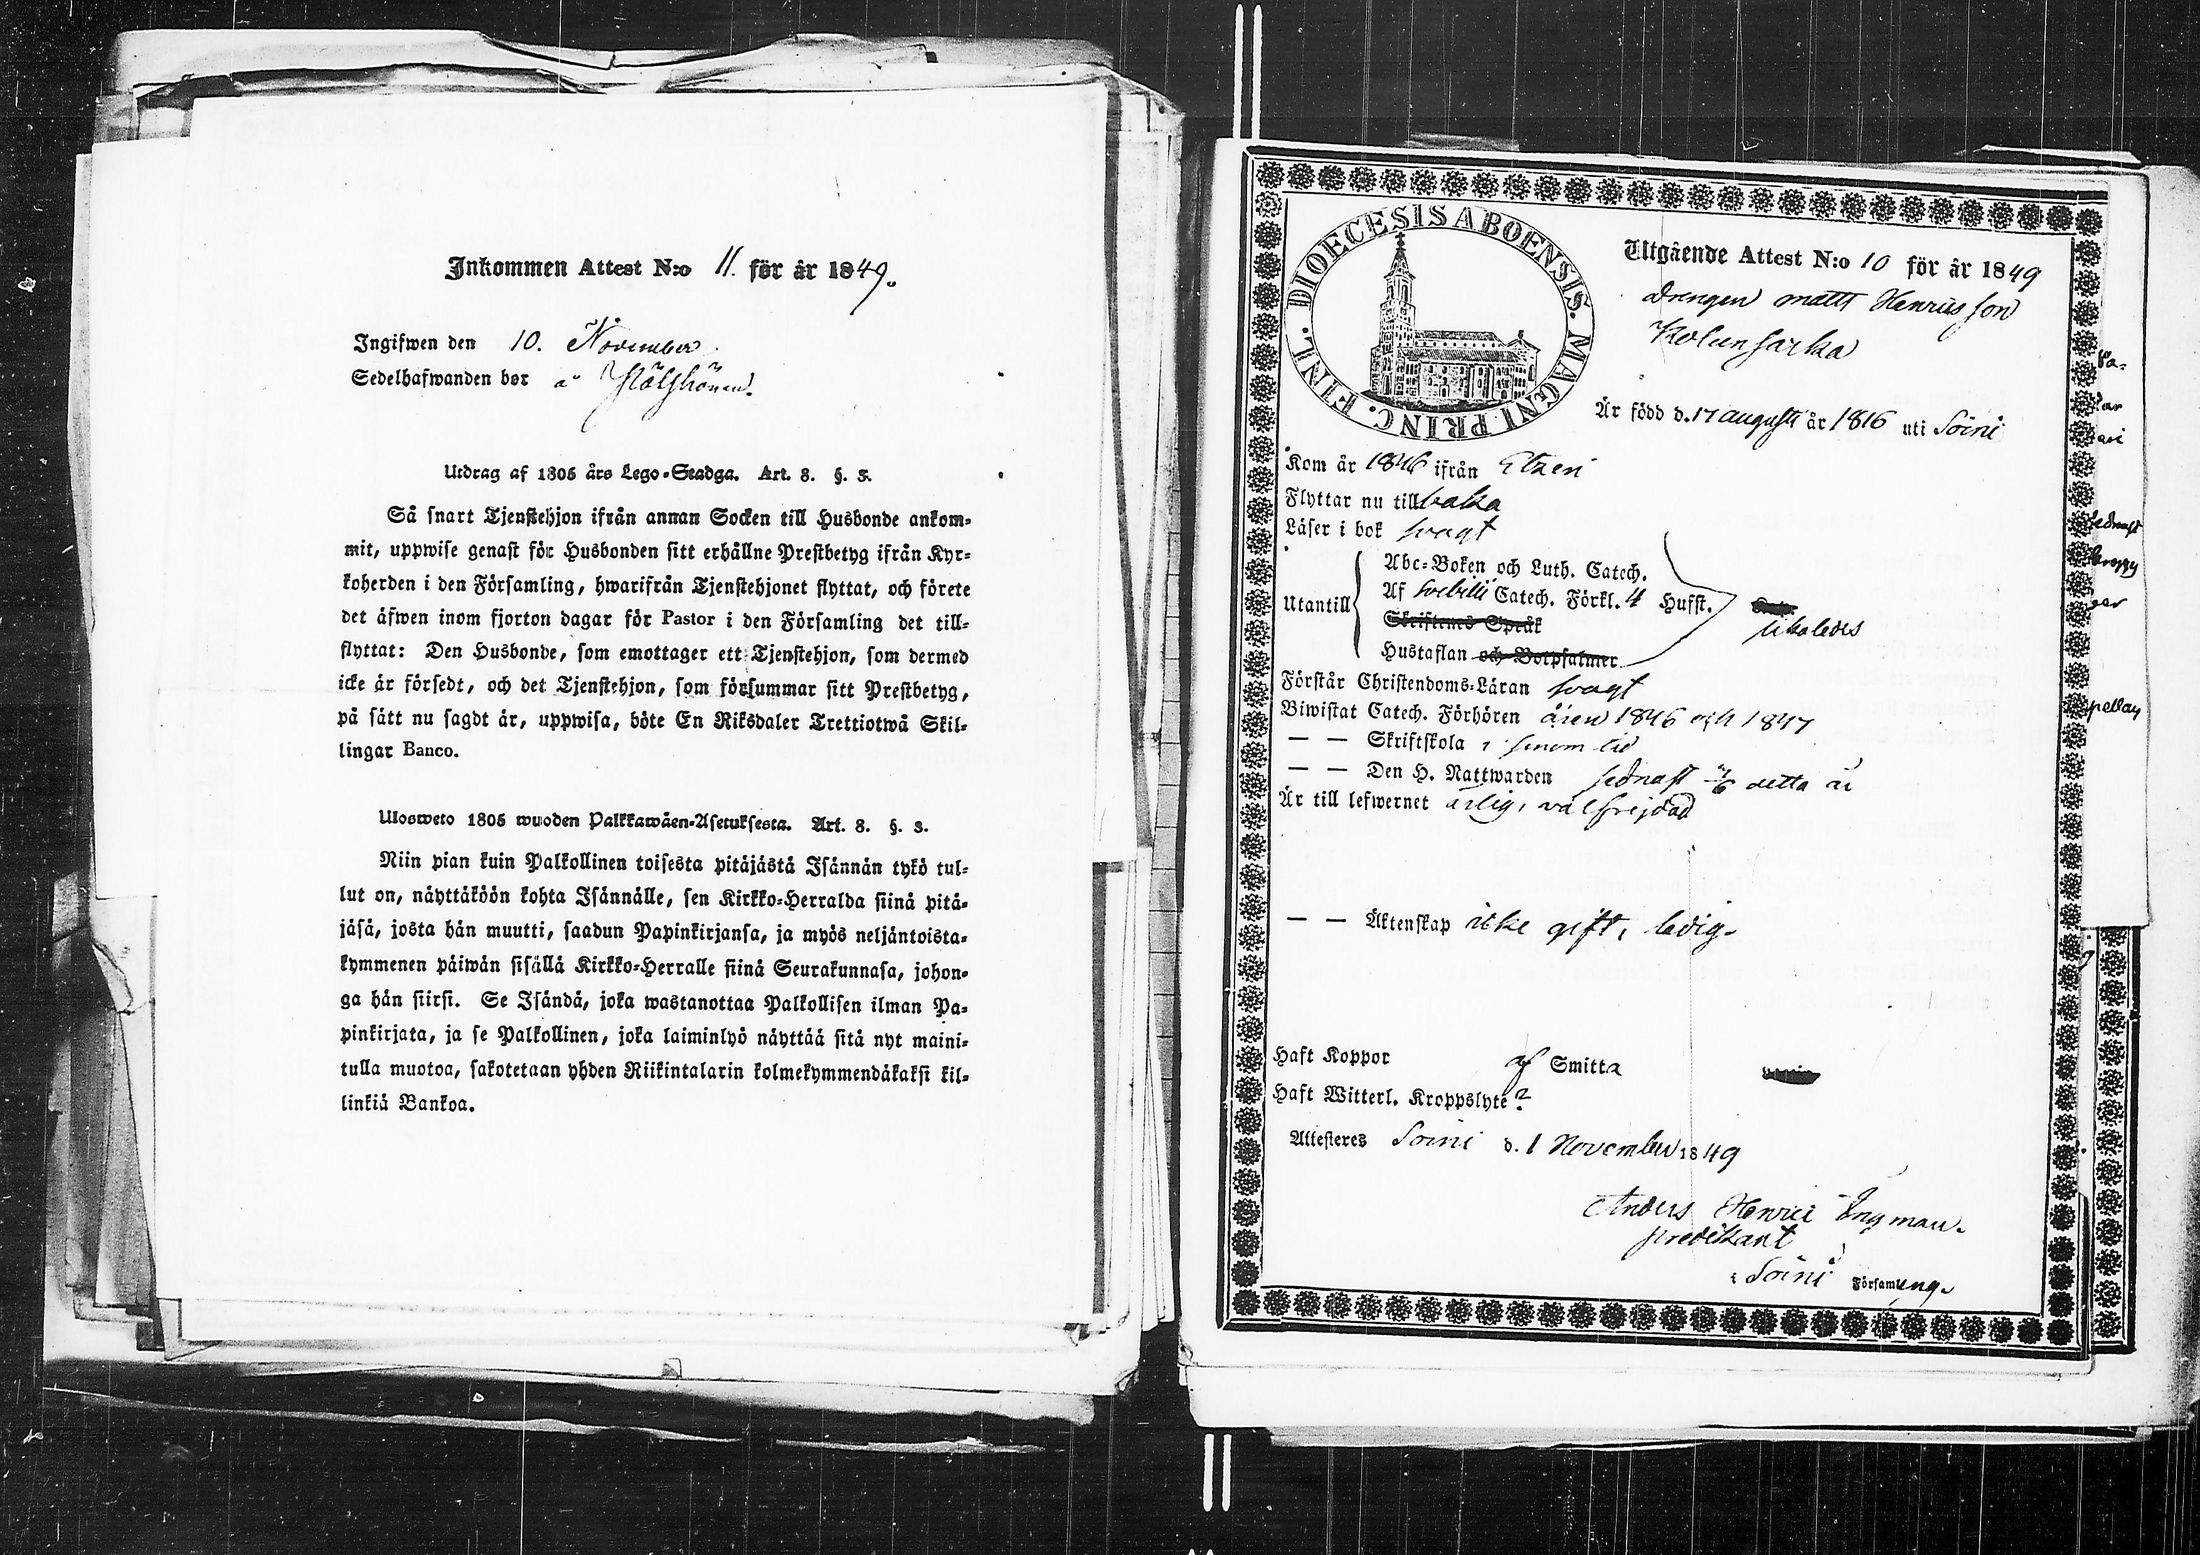 Inkommen Attest N:o 11. för år 1849.
Ingifwen den 10. November
Sedelhafwanden bor å
Utdrag af 1805 års Lego-Stadga. Art. 8. §. 3.
Så snart Tjenstehjon ifrån annan Socken till Husbonde ankom-
mit, uppwise genast för Husbonden sitt erhållne Prestbetyg ifrån Kyr-
koherden i den Församling, hwarifrån Tjenstehjonet flyttat, och förete
det äfwen inom fjorton dagar för Pastor i den Församling det till-
flyttat: Den Husbonde, som emottager ett Tjenstehjon, som dermed
icke är försedt, och det Tjenstehjon, som försummar sitt Prestbetyg,
på sätt nu sagdt är, uppwisa, böte En Riksdaler Trettiotwå Skil-
lingar Banco.
Ulosweto 1805 wuoden Palkkawäen-Asetuksesta. Art. 8. §. 3.
Niin pian kuin Palkollinen toisesta pitäjästä Isännän tykö tul-
lut on, näyttäköön kohta Isännälle, sen Kirkko-Herralda siinä pitä-
jäsä, josta hän muutti, saadun Papinkirjansa, ja myös neljäntoista-
kymmenen päiwän sisällä Kirkko-Herralle siinä Seurakunnasa, johon-
ga hän siirsi. Se Isändä, joka wastanottaa Palkollisen ilman Pa-
pinkirjata, ja se Palkollinen, joka laiminlyö näyttää sitä nyt maini-
tulla muotoa, sakotetaan yhden Riikintalarin kolmekymmendäkaksi kil-
linkiä Bankoa.
FINL. DIOECESIS ABOENSIS. MAGNI PRINC.
Utgående Attest N:o 10 för år 1849
Drengen Matts Henricsson
Kolunsarka
Är född d. 17 augusti år 1816 uti Soini
Kom år 1846 ifrån Etzeri
Flyttar nu tillbaka
Läser i bok svagt
Utantill
Abc-Boken och Luth. Catech.
Af Svebilii Catech. Förkl. 4 Hufst.
Skriftenes Språk
Hustaflan och Botpsalmer
likaledes
Förstår Christendoms-Läran svagt
Biwistat Catech. Förhören åren 1846 och 1847
— — Skriftskola i sinom tid
— — Den H. Nattwarden sednast detta år
Är till lefwernet ärlig, välfrejdad
— — Äktenskap icke gift, ledig.
Haft Koppor af Smitta
Haft Witterl. Kroppslyte ?
Attesteres Soini d. 1 November 1849
Anders Henric Ingman.
predikant
i Soini Församling.
pellan